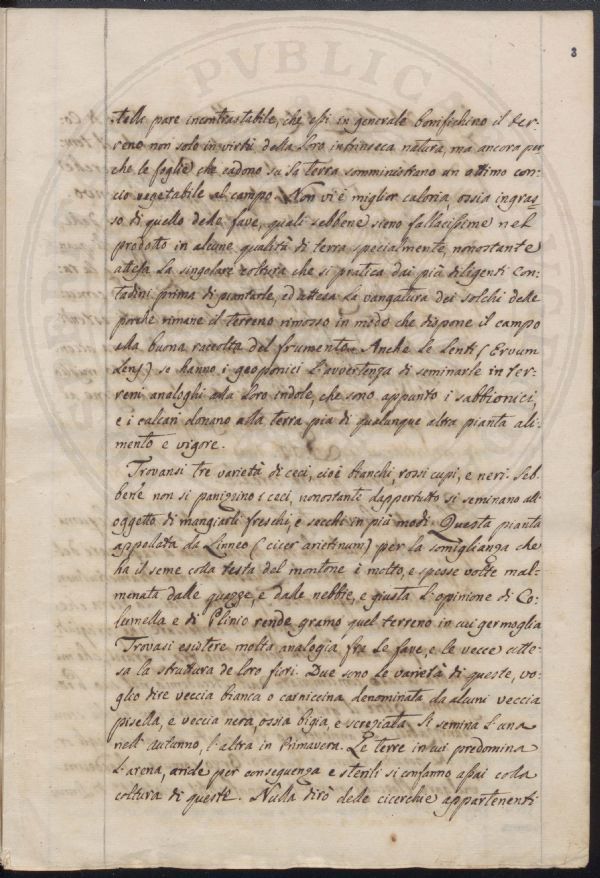 3
talla pare incontrastabile, che essi in generale bonifichino il ter-
reno non solo in virtù della loro intrinseca natura, ma ancora per
che le foglie che cadono su la terra somministrano un ottimo con-
cio vegetabile al campo. Non vi è miglior caloria, ossia ingras
so di quello delle fave, quali sebbene sieno fallacissime nel
prodotto in alcune qualità di terra specialmente, nonostante
attesa la singolare coltura che si pratica dai più diligenti Con-
tadini prima di piantarle, ed attesa la vangatura dei solchi delle
porche rimane il terreno rimosso in modo che dispone il campo
alla buona raccolta del frumento. Anche le lenti (Ervum
Lens) se hanno i geoponici l'avvertenza di seminarle in ter-
reni analoghi alla loro indole, che sono appunto i sabbionici,
e i calcari donano alla terra più di qualunque altra pianta ali-
mento e vigore.
Trovansi tre varietà di ceci, cioè bianchi, rossi cupi, e neri. Seb-
bene non si panizzino i ceci, nonostante dappertutto si seminano all'
oggetto di mangiarli freschi, e secchi in più modi. Questa pianta
appellata da Linneo (cicer arietinum) per la somiglianza che
ha il seme colla testa del montone è molto, e spesse volte mal-
menata dalle guazze, e dalle nebbie, e giusta l'opinione di Co-
lumella e di Plinio rende gramo quel terreno in cui germoglia
Trovasi esistere molta analogia fra le fave, e le vecce atte-
sa la struttura de loro fiori. Due sono le varietà di queste, vo-
glio dire veccia bianca o carniccina denominata da alcuni veccia
pisella, e veccia nera, ossia bigia, e screziata. Si semina l'una
nell'Autunno, l'altra in Primavera. Le terre in cui predomina
l'arena, aride per conseguenza e sterili si confanno assai colla
coltura di queste. Nulla dirò delle cicerchie appartenenti
PVBLICA